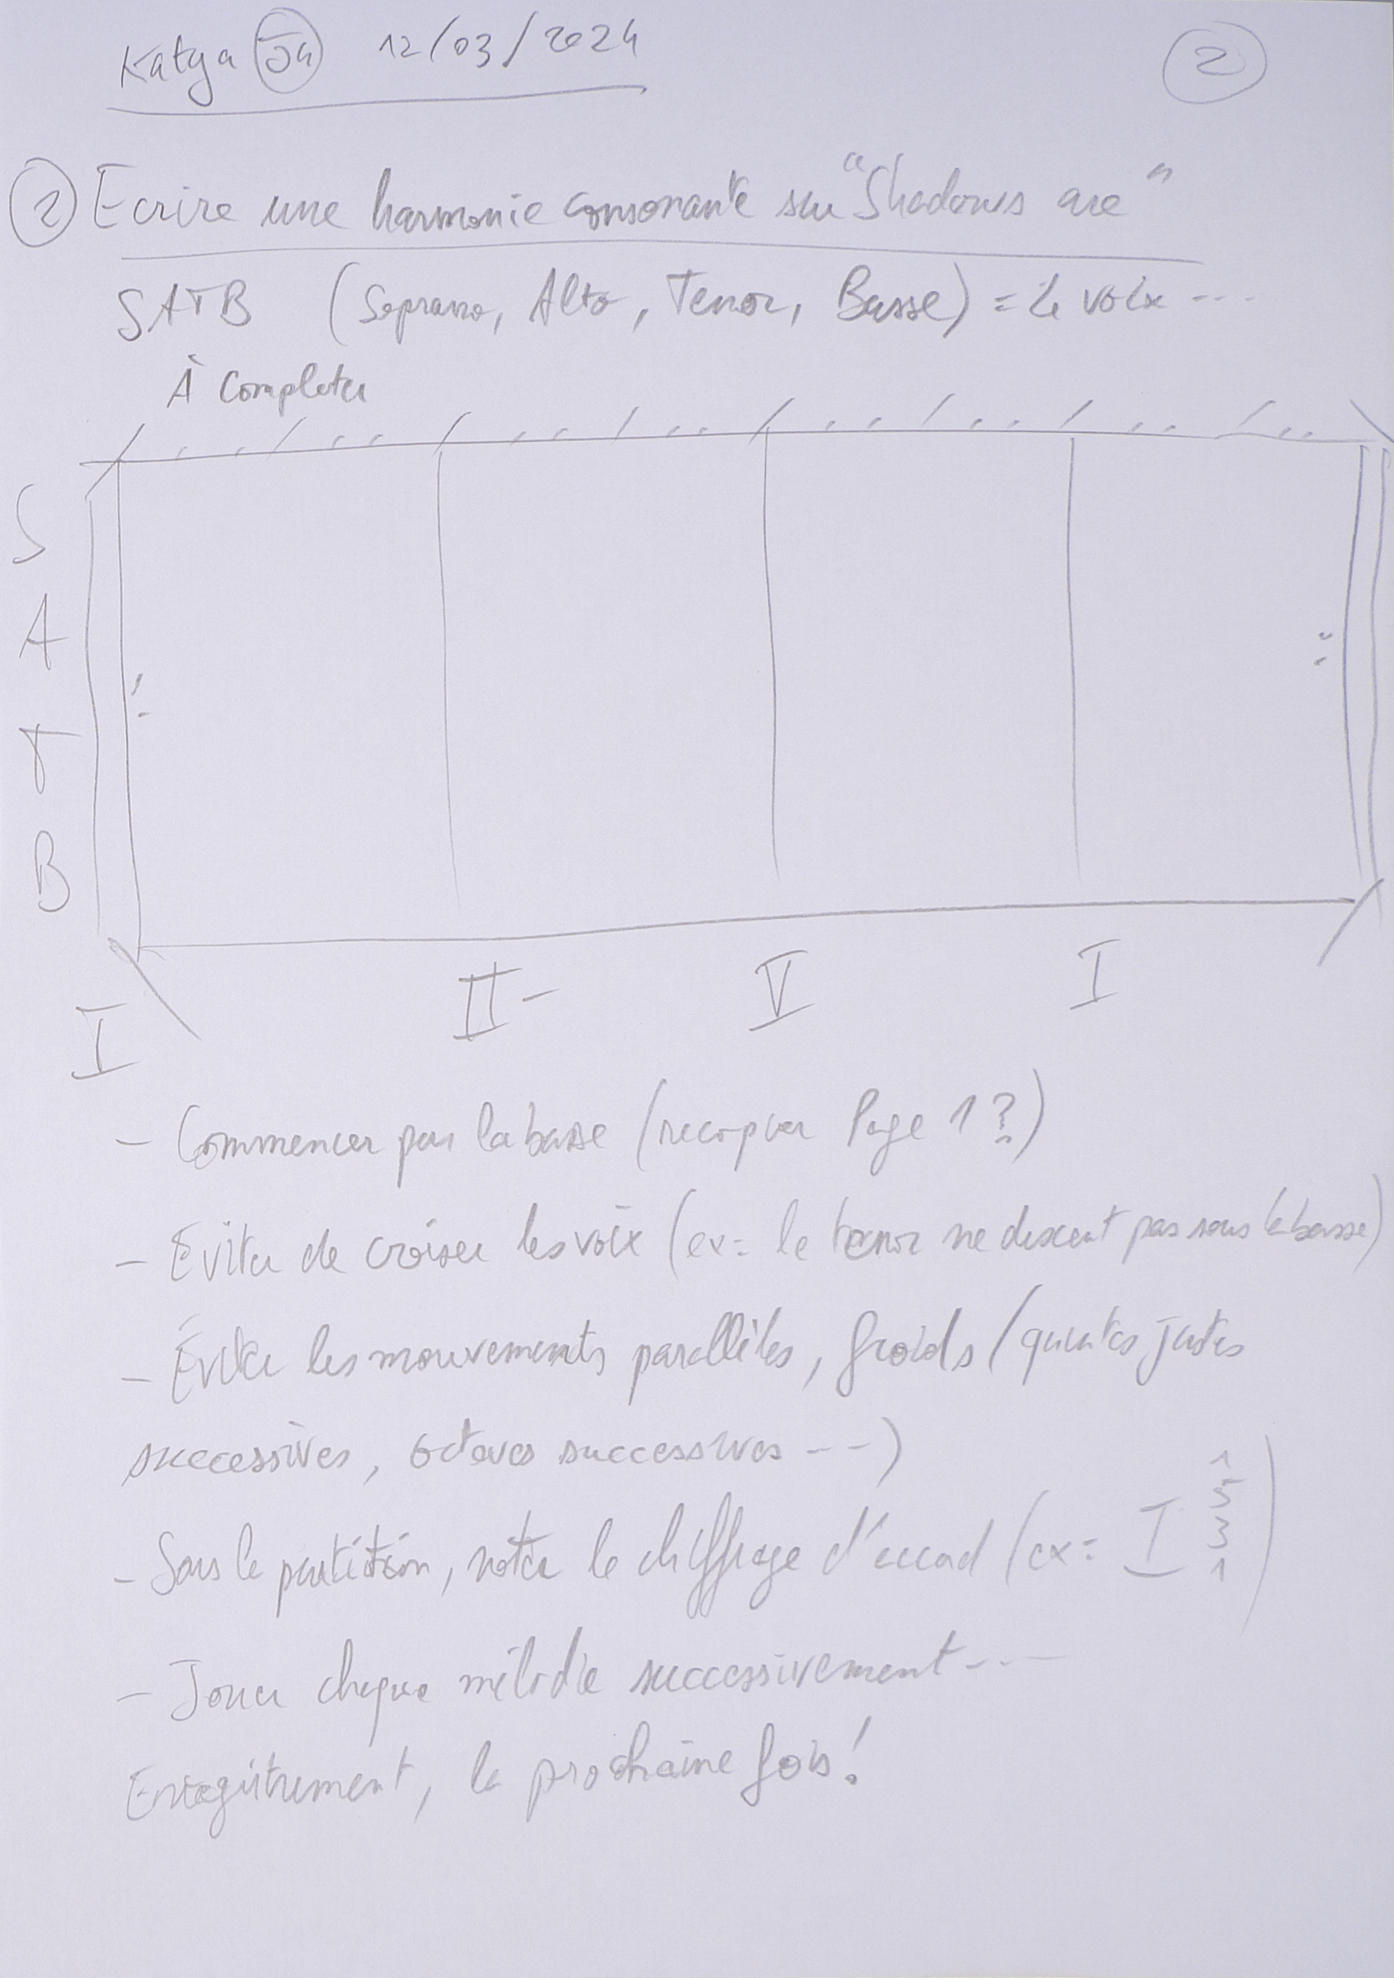 Katya 12/03/2024
2
2 Ecrire une harmonie consonante sur "Shadows are"
SATB (Soprano, Alto, Tenor, Basse) = 4 voix ---
À Completer
S
A
T
B
I II- V I
- Commencer par la basse (recopier Page 1 ?)
- Eviter de croiser les voix (ex: le tenor ne descent pas sous la basse)
- Éviter les mouvements parallèles, froids (quintes justes
successives, octaves successives ---)
- Sous la partition, noter le chiffrage d'accord (ex: I 1 5 3 1)
- Jouer chaque mélodie successivement ---
Enregistrement, la prochaine fois !